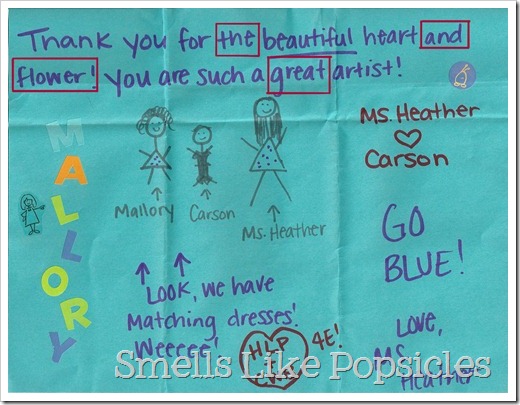 Thank you for the beautiful heart and
flower! You are such a great artist!
MALLORY
Ms. Heather
♡
Carson
Mallory
Carson
Ms. Heather
GO
BLUE!
Look, we have
Matching dresses!
Weeeee!
HLP
4E!
Love,
Ms.
Heather
Smells Like Popsicles